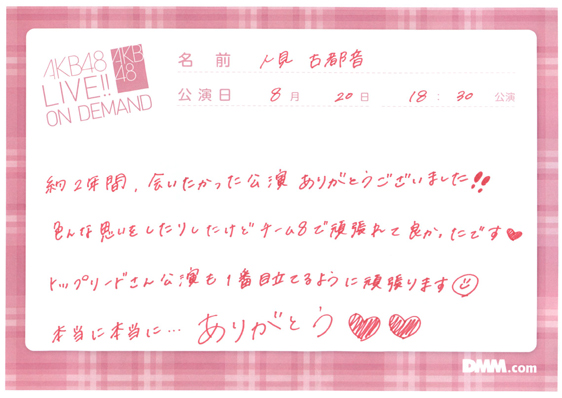 AKB48
LIVE!!
ON DEMAND
AKB
48
名前 人見 古都音
公演日 8月 20日 18:30 公演
約2年間、会いたかった公演 ありがとうございました!!
色んな思いをしたりしたけどチーム8で頑張れて良かったです♥
トップリードさん公演も1番目立てるように頑張ります☺
本当に本当に… ありがとう ♥♥
DMM.com